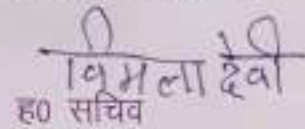 विमला देवी
ह0 सचिव